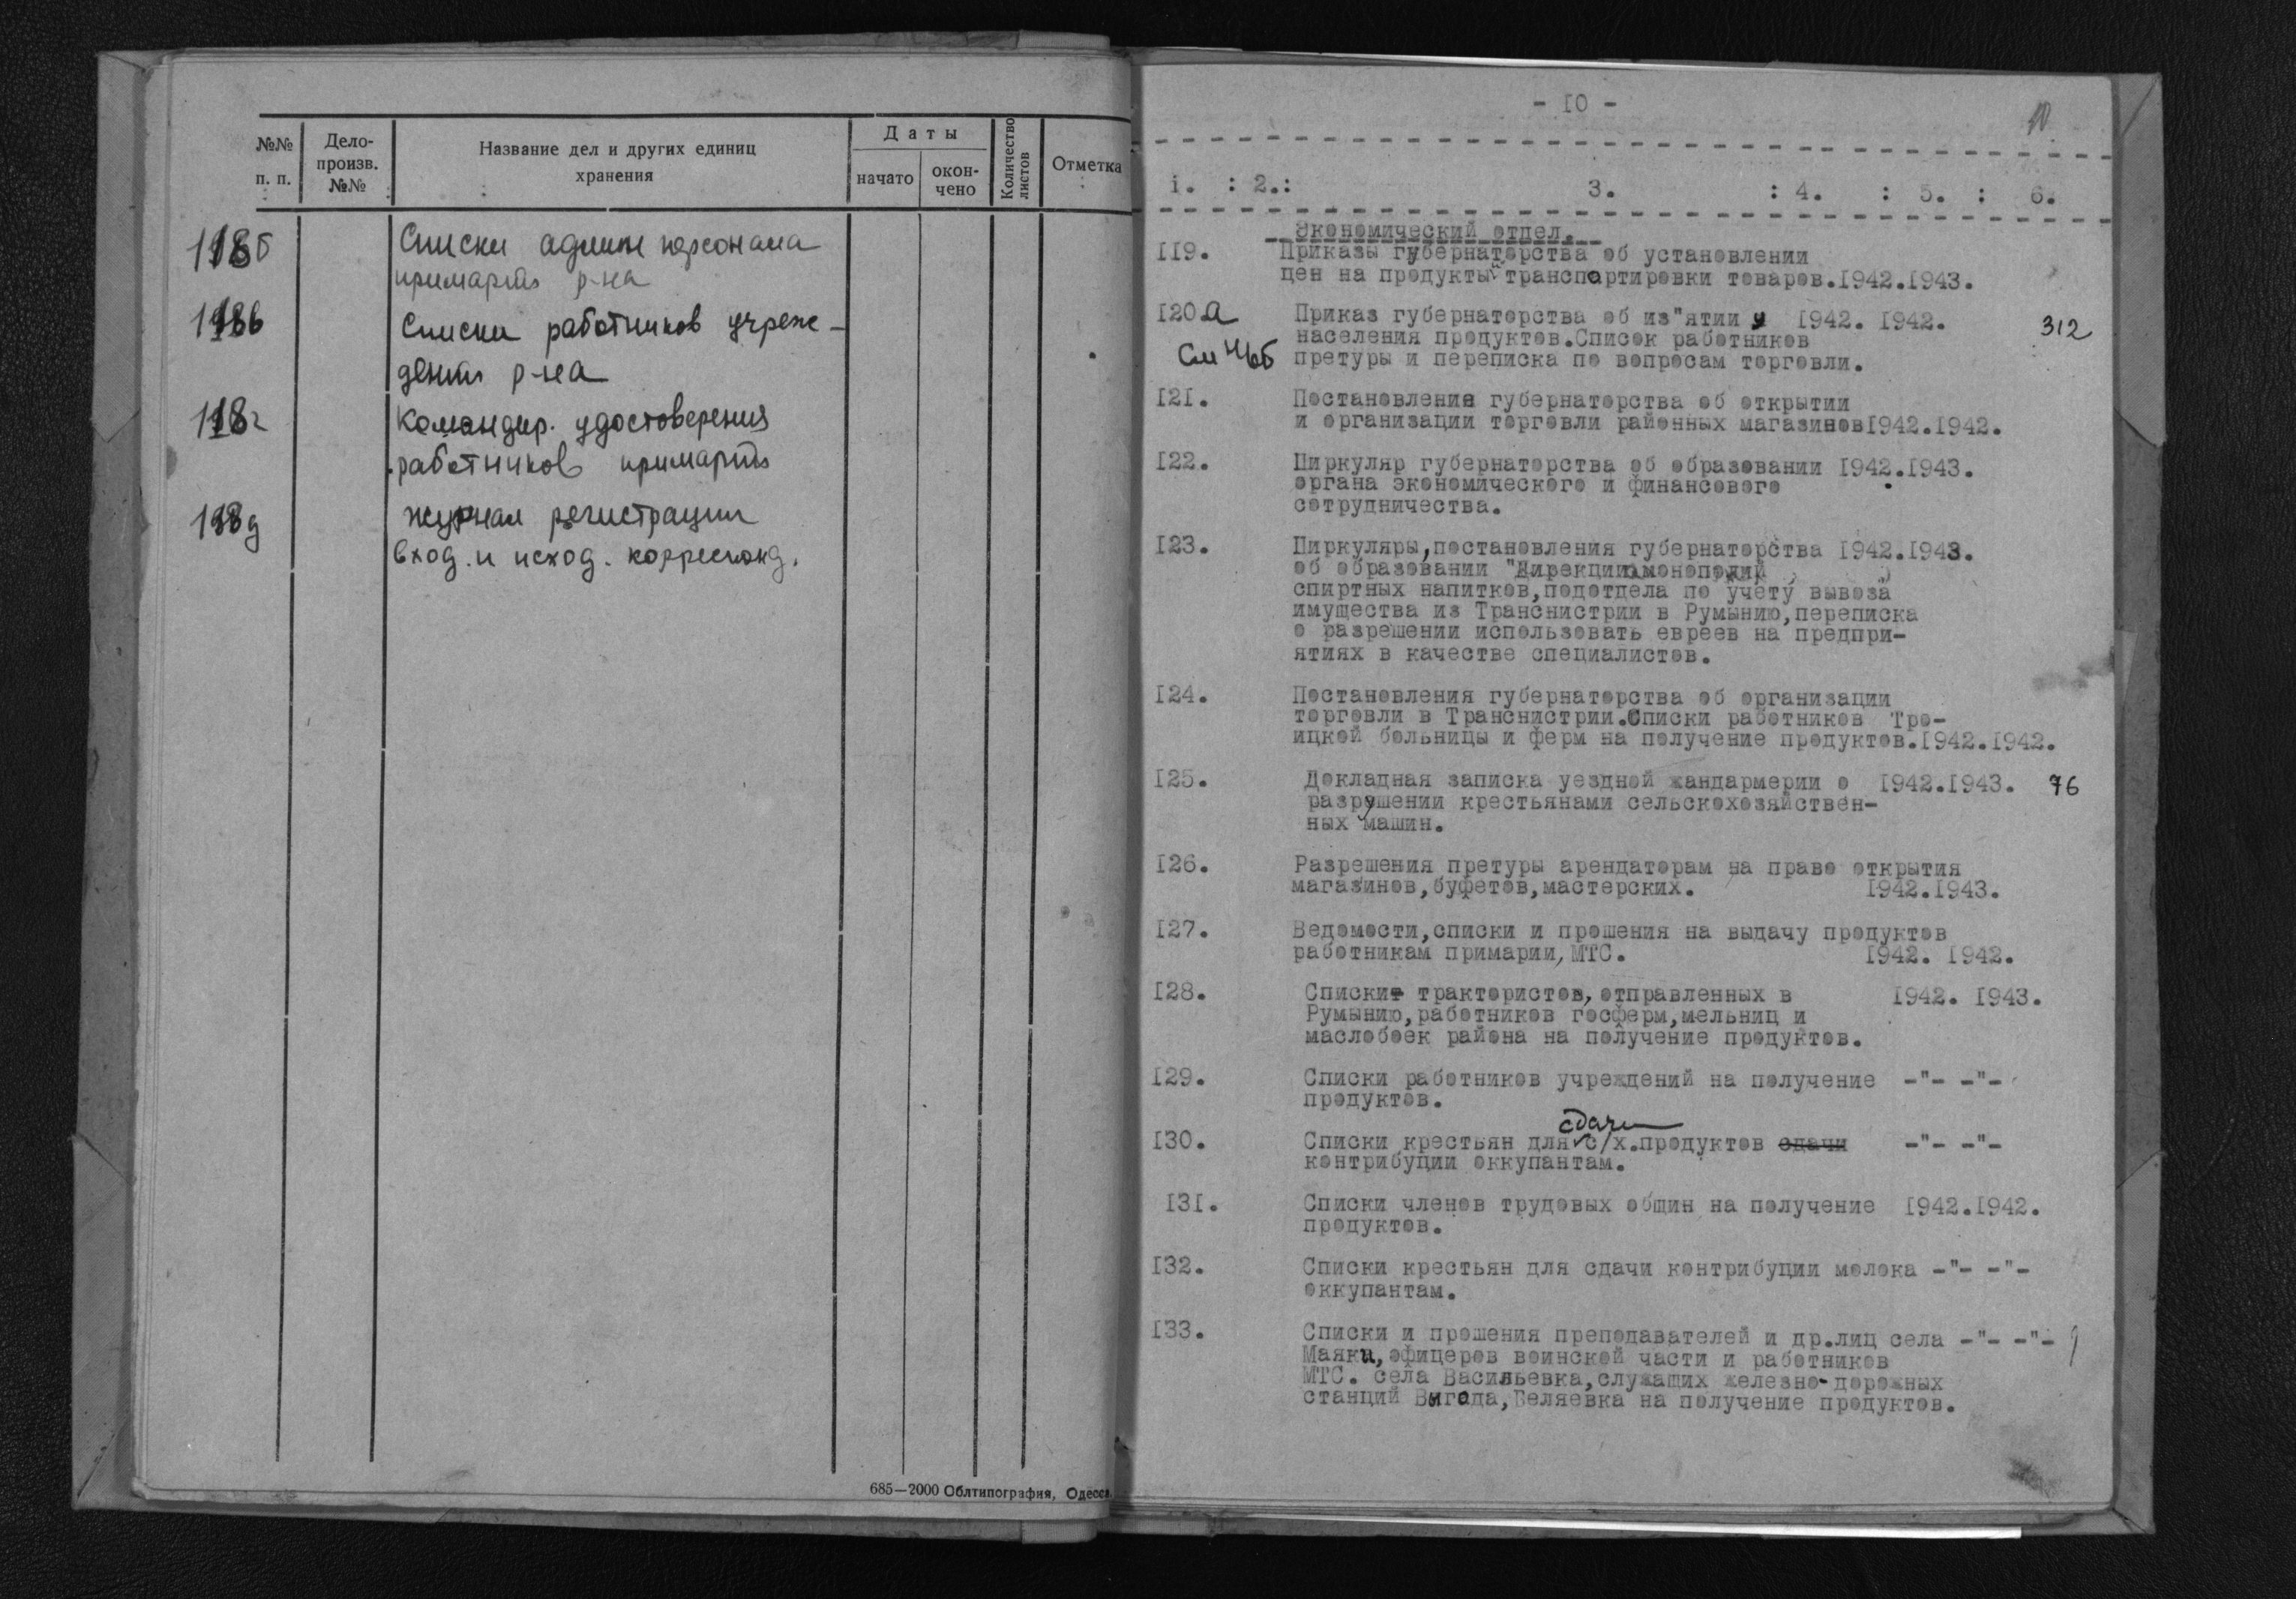 №№ п. п.
Дело-
произв.
№№
Название дел и других единиц
хранения
Даты
начато
окон-
чено
Количество
листов
Отметка
118б Списки админ персонала
примарий р-на
118в Списки работников учреж-
дений р-на
118г Командир. удостоверения
работников примарий
118д журнал регистрации
вход. и исход. корреспонд.
685—2000 Облтипография, Одесса.
- I0 -
10
i. : 2.: 3. : 4. : 5. : 6.
Экономический отдел.
II9. Приказы губернаторства об установлении
цен на продукты транспортировки товаров.I942.I943.
I20а Приказ губернаторства об из"ятии у I942. I942. 312
населения продуктов.Список работников
См 46б претуры и переписка по вопросам торговли.
I2I. Постановления губернаторства об открытии
и организации торговли районных магазиновI942.I942.
I22. Циркуляр губернаторства об образовании I942.I943.
органа экономического и финансового
сотрудничества.
I23. Циркуляры,постановления губернаторства I942.I943.
об образовании "Дирекции монополий
спиртных напитков,подотдела по учету вывоза
имущества из Транснистрии в Румынию,переписка
о разрешении использовать евреев на предпри-
ятиях в качестве специалистов.
I24. Постановления губернаторства об организации
торговли в Транснистрии.Списки работников Тро-
ицкой больницы и ферм на получение продуктов.I942.I942.
I25. Докладная записка уездной жандармерии о I942.I943. 76
разрушении крестьянами сельскохозяйствен-
ных машин.
I26. Разрешения претуры арендаторам на право открытия
магазинов,буфетов,мастерских. I942.I943.
I27. Ведомости,списки и прошения на выдачу продуктов
работникам примарии, МТС. I942. I942.
I28. Списки трактористов, отправленных в I942. I943.
Румынию,работников госферм,мельниц и
маслобоек района на получение продуктов.
I29. Списки работников учреждений на получение -"- -"-
продуктов.
сдачи
I30. Списки крестьян для с/х.продуктов сдачи -"- -"-
контрибуции оккупантам.
I3I. Списки членов трудовых общин на получение I942.I942.
продуктов.
I32. Списки крестьян для сдачи контрибуции молока -"- -"-
оккупантам.
I33. Списки и прошения преподавателей и др.лиц села -"- -"-
Маяки,офицеров воинской части и работников
МТС. села Васильевка,служащих железно-дорожных
станций Выгода,Беляевка на получение продуктов.